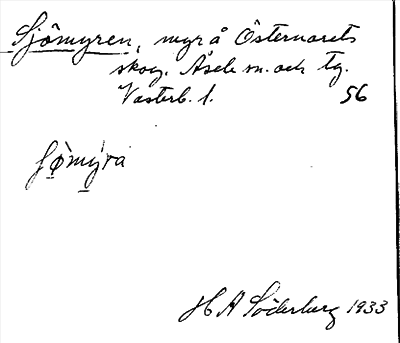 Sjömyren, myr å Östernorets
skog. Åsele sn. och tg.
Västerb. l. 56
ʃø̀mýra
H A Söderberg 1933